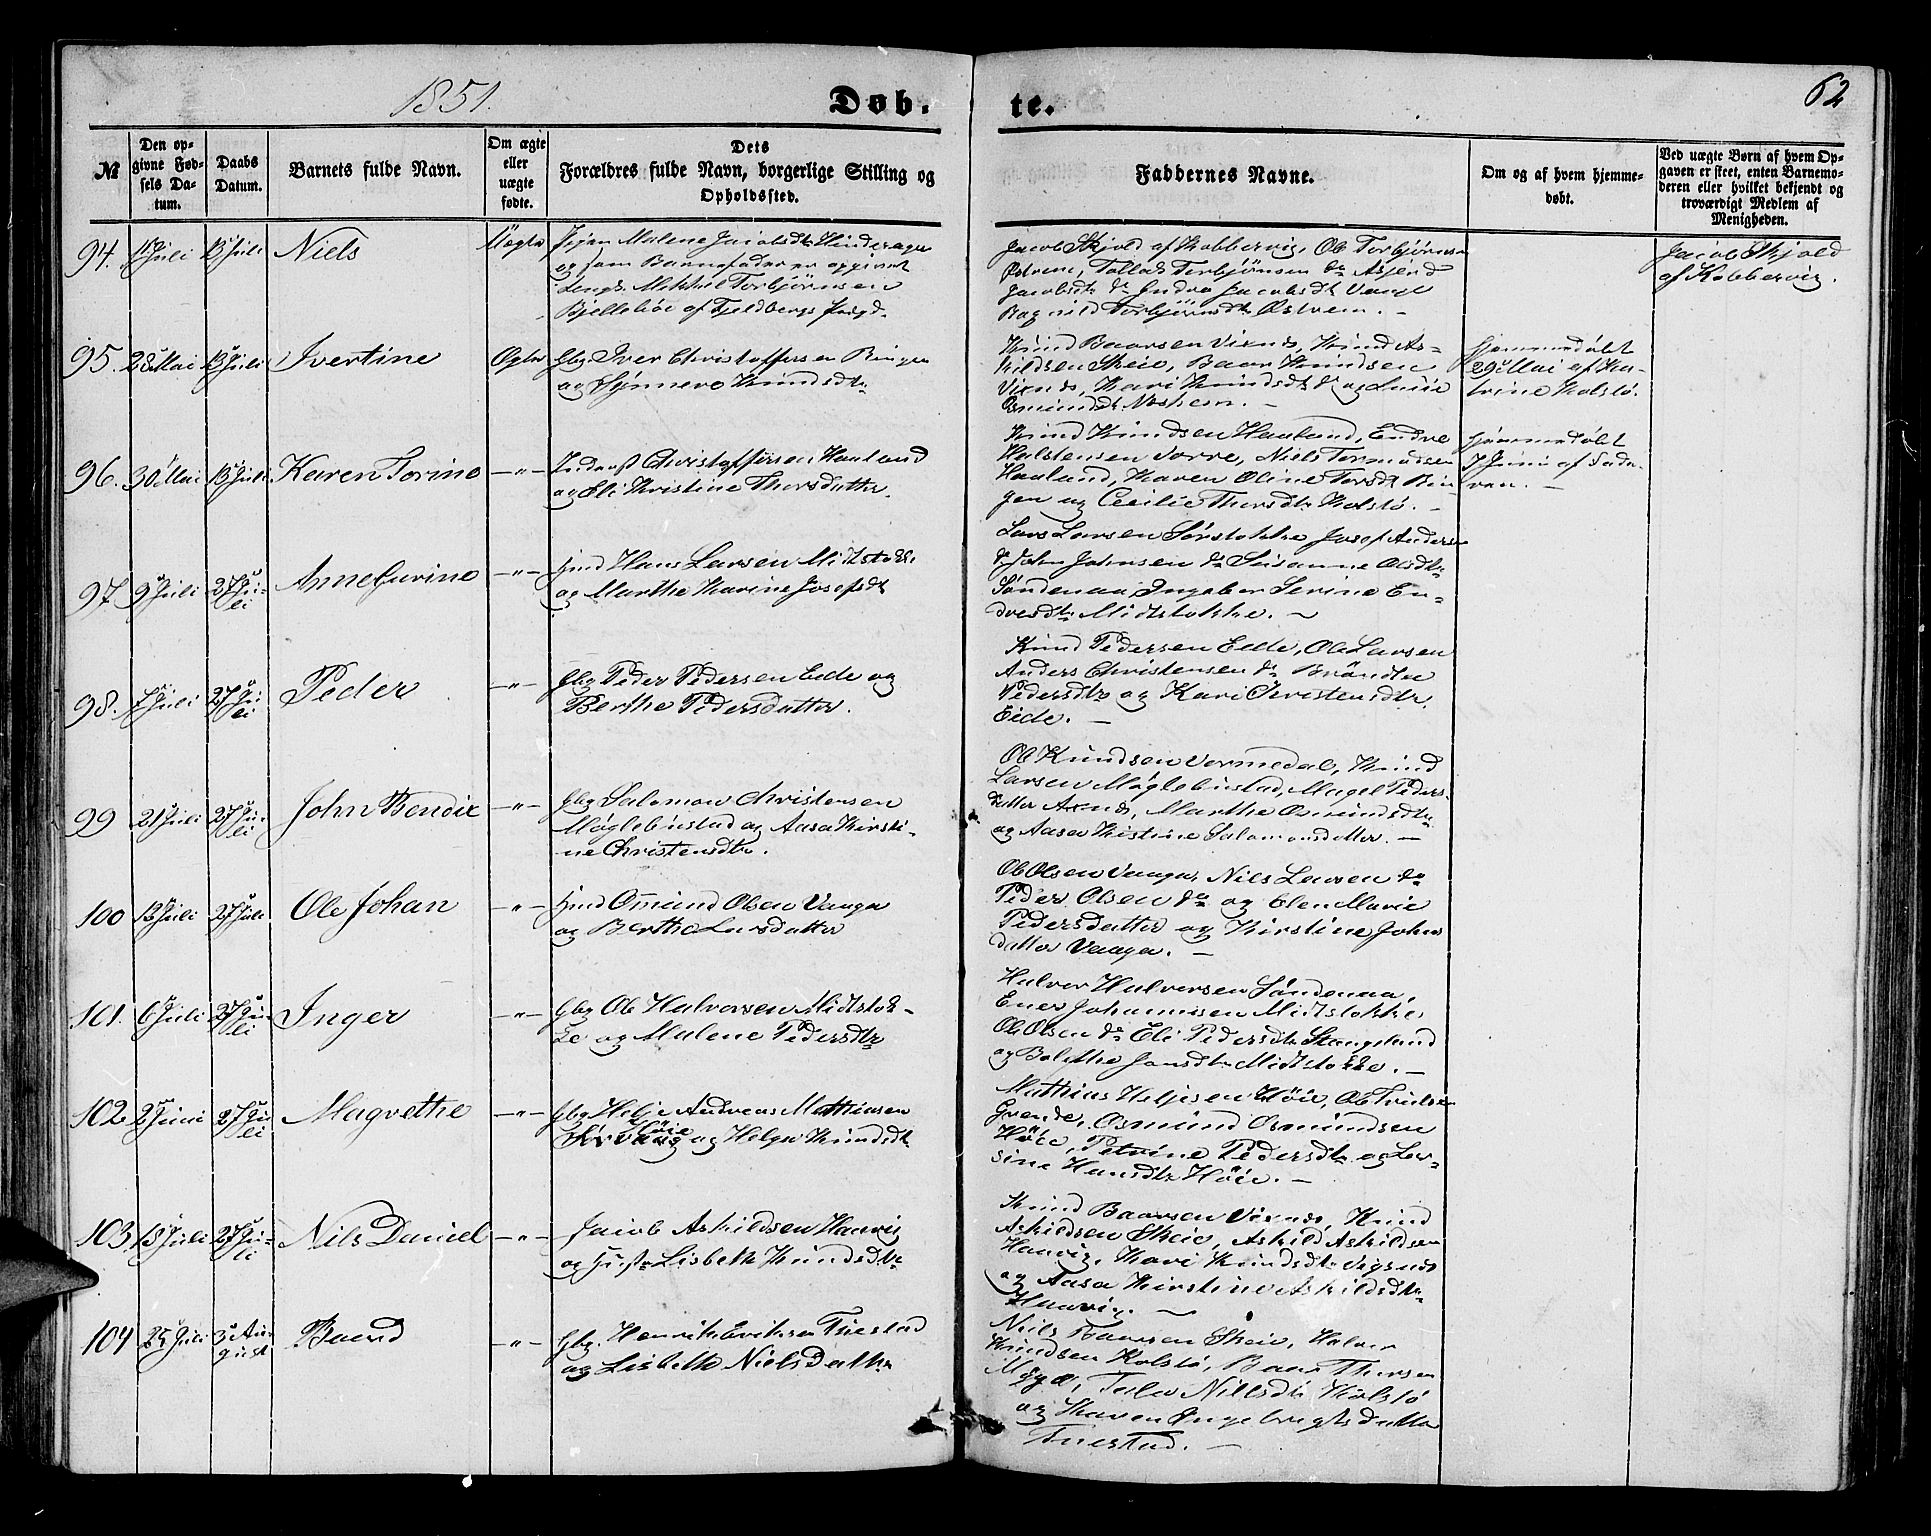 1851.
Døb.
te.
62
№
Den op-
givne Fød-
sels Da-
tum.
Daabs
Datum.
Barnets fulde Navn.
Om ægte
eller
uægte
fødte.
Dets
Forældres fulde Navn, borgerlige Stilling og
Opholdssted.
Faddernes Navne.
Om og af hvem hjemme-
døbt.
Ved uægte Børn af hvem Op-
gaven er skeet, enten Barnemo-
deren eller hvilket bekjendt og
troværdigt Medlem af
Menigheden.
94. Juli 13 Juli Niels Uægte Pigen Malene Jacobsdtr Hinderager
og som Barnefader er opgivet
Mikkel Torbjørnsen
Bjelleböe af Fjeldbergs Prgd.
Jacob Skjold af Kobbervig, Ole Torbjørnsen
Østrem, Tollak Torbjørnsen do
Jacobsdtr do Jacobsdtr
Torbjørnsdtr Østrem. -
Jacob Skjold
af Kobbervig.
95. 28 Mai 13 Juli Ivertine Ægte Gbr Iver Christoffersen Ringen
og Synneve Knudsdtr
Knud Baarsen Vixnes, Knud As-
kildsen Skeie, Baar Knudsen
Vixnes, Kari Knudsdtr do og
Osmundsdtr -
Hjemmedøbt
29 Mai af Ka-
trine Kolstø.
96. 30 Mai 13 Juli Karen Torine -"- Christoffersen Haaland
og Eli Christine Thorsdatter
Knud Knudsen Haaland, Endre
Halstensen Sørre, Niels Tormodsen
Haaland, Karen Oline Torsdtr Rin-
gen og Cecilie Thorsdtr Kolstø. -
Hjemmedøbt
7 Juni af Fade-
ren. -
97. 9 Juli 27 Ju-
li Anne Gurine -"- Hmd Hans Larsen Midtstokke
og Marthe Karine Josefsdtr
Lars Larsen Sørstokke Josef Andersen
do John Johnsen do Susanne Olsdtr
Søndenaa, Ingebor Serine En-
dresdtr Midtstokke. -
98. 7 Juli 27 Ju-
li Peder -"- Gbr Peder Pedersen Eide og
Berthe Pedersdatter.
Knud Pedersen Eide, Ole Larsen
Anders Christensen do
Pedersdtr og Kari Christensdtr
Eide. -
99 21 Juli 27 Ju-
li John Bendix -"- Gbr Salomon Christensen
Møglebustad og Aasa Kirsti-
ne Christensdtr.
Ole Knudsen Vormedal, Knud
Larsen Møglebustad, Magel Peders-
datter Marthe Osmundsdtr
og Aasa Kistine Salomonsdatter. -
100 13 Juli 27 Juli Ole Johan -"- Hmd Osmund Olsen Vaage
og Berthe Larsdatter
Ole Olsen Vaage, Niels Larsen do
Peder Olsen do og Elen Marie
Pedersdatter og Kirstine Johns
datter Vaage. -
101. 6 Juli 27 Ju-
li Inger -"- Gbr Ole Halvorsen Midtstok-
ke og Malene Pedersdtr
Halvor Halvorsen Søndenaa,
Ener Johannisen Midtstokke
Ole Olsen do Eli Pedersdtr Stangeland
og Bolethe Jonsdtr Midtstokke. -
102 2 Juni 27 Ju-
li Magrethe -"- Gbr Helje Andreas Mathiasen
Høie og Helga Knudsdtr
Mathias Heljesen Høie, Ole
Osmund Osmundsen
Høie, Petrine Pedersdtr og Lov-
sine Hansdtr Høie. -
103. 13 Juli 27 Ju-
li Nils Daniel -"- Jacob Askildsen Haavig
og Hustr Lisbeth Knudsdtr
Knud Baarsen Vixnes, Knud
Askildsen Skeie, Askild Askildsen
Haavig, Kari Knudsdtr Vigsnes
og Aasa Kirstine Askildsdtr
Haavig. -
104 25 Juli 3 Au-
gust Baard -"- Gbr. Henrik Eriksen Tuestad
og Lisbeth Nielsdatter
Niels Skeie, Halvor
Knudsen Kolstø, Baar Thorsen
Nielsdtr Kolstø
og Karen Ingebrigtsdatter
Tuestad. -